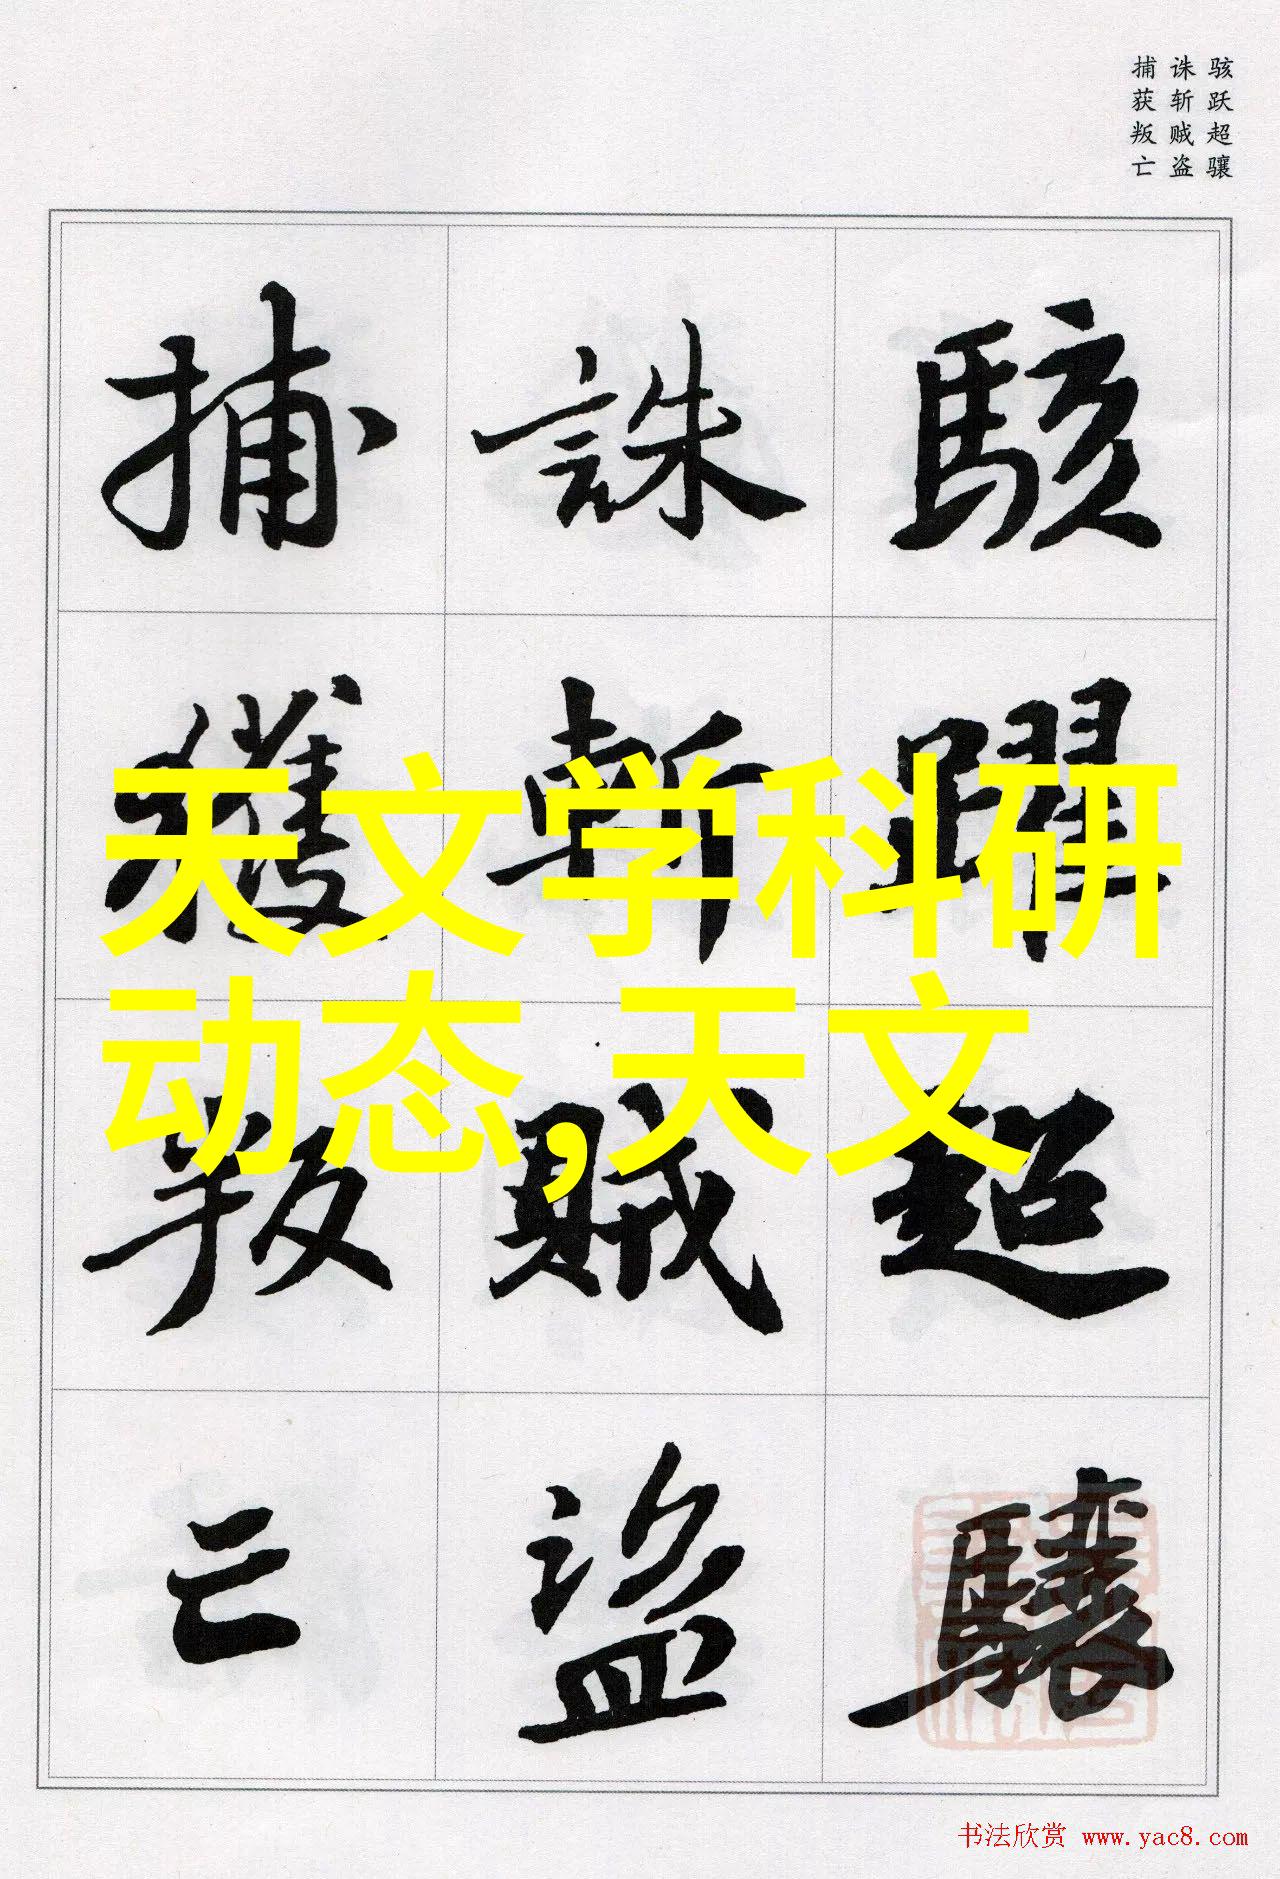 骇跃超骧
诛斩贼盗
捕获叛亡
駭躍超驤
誅斬賊盗
捕獲叛亡
天文学科研
动态,天文
书法欣赏 www.yac8.com